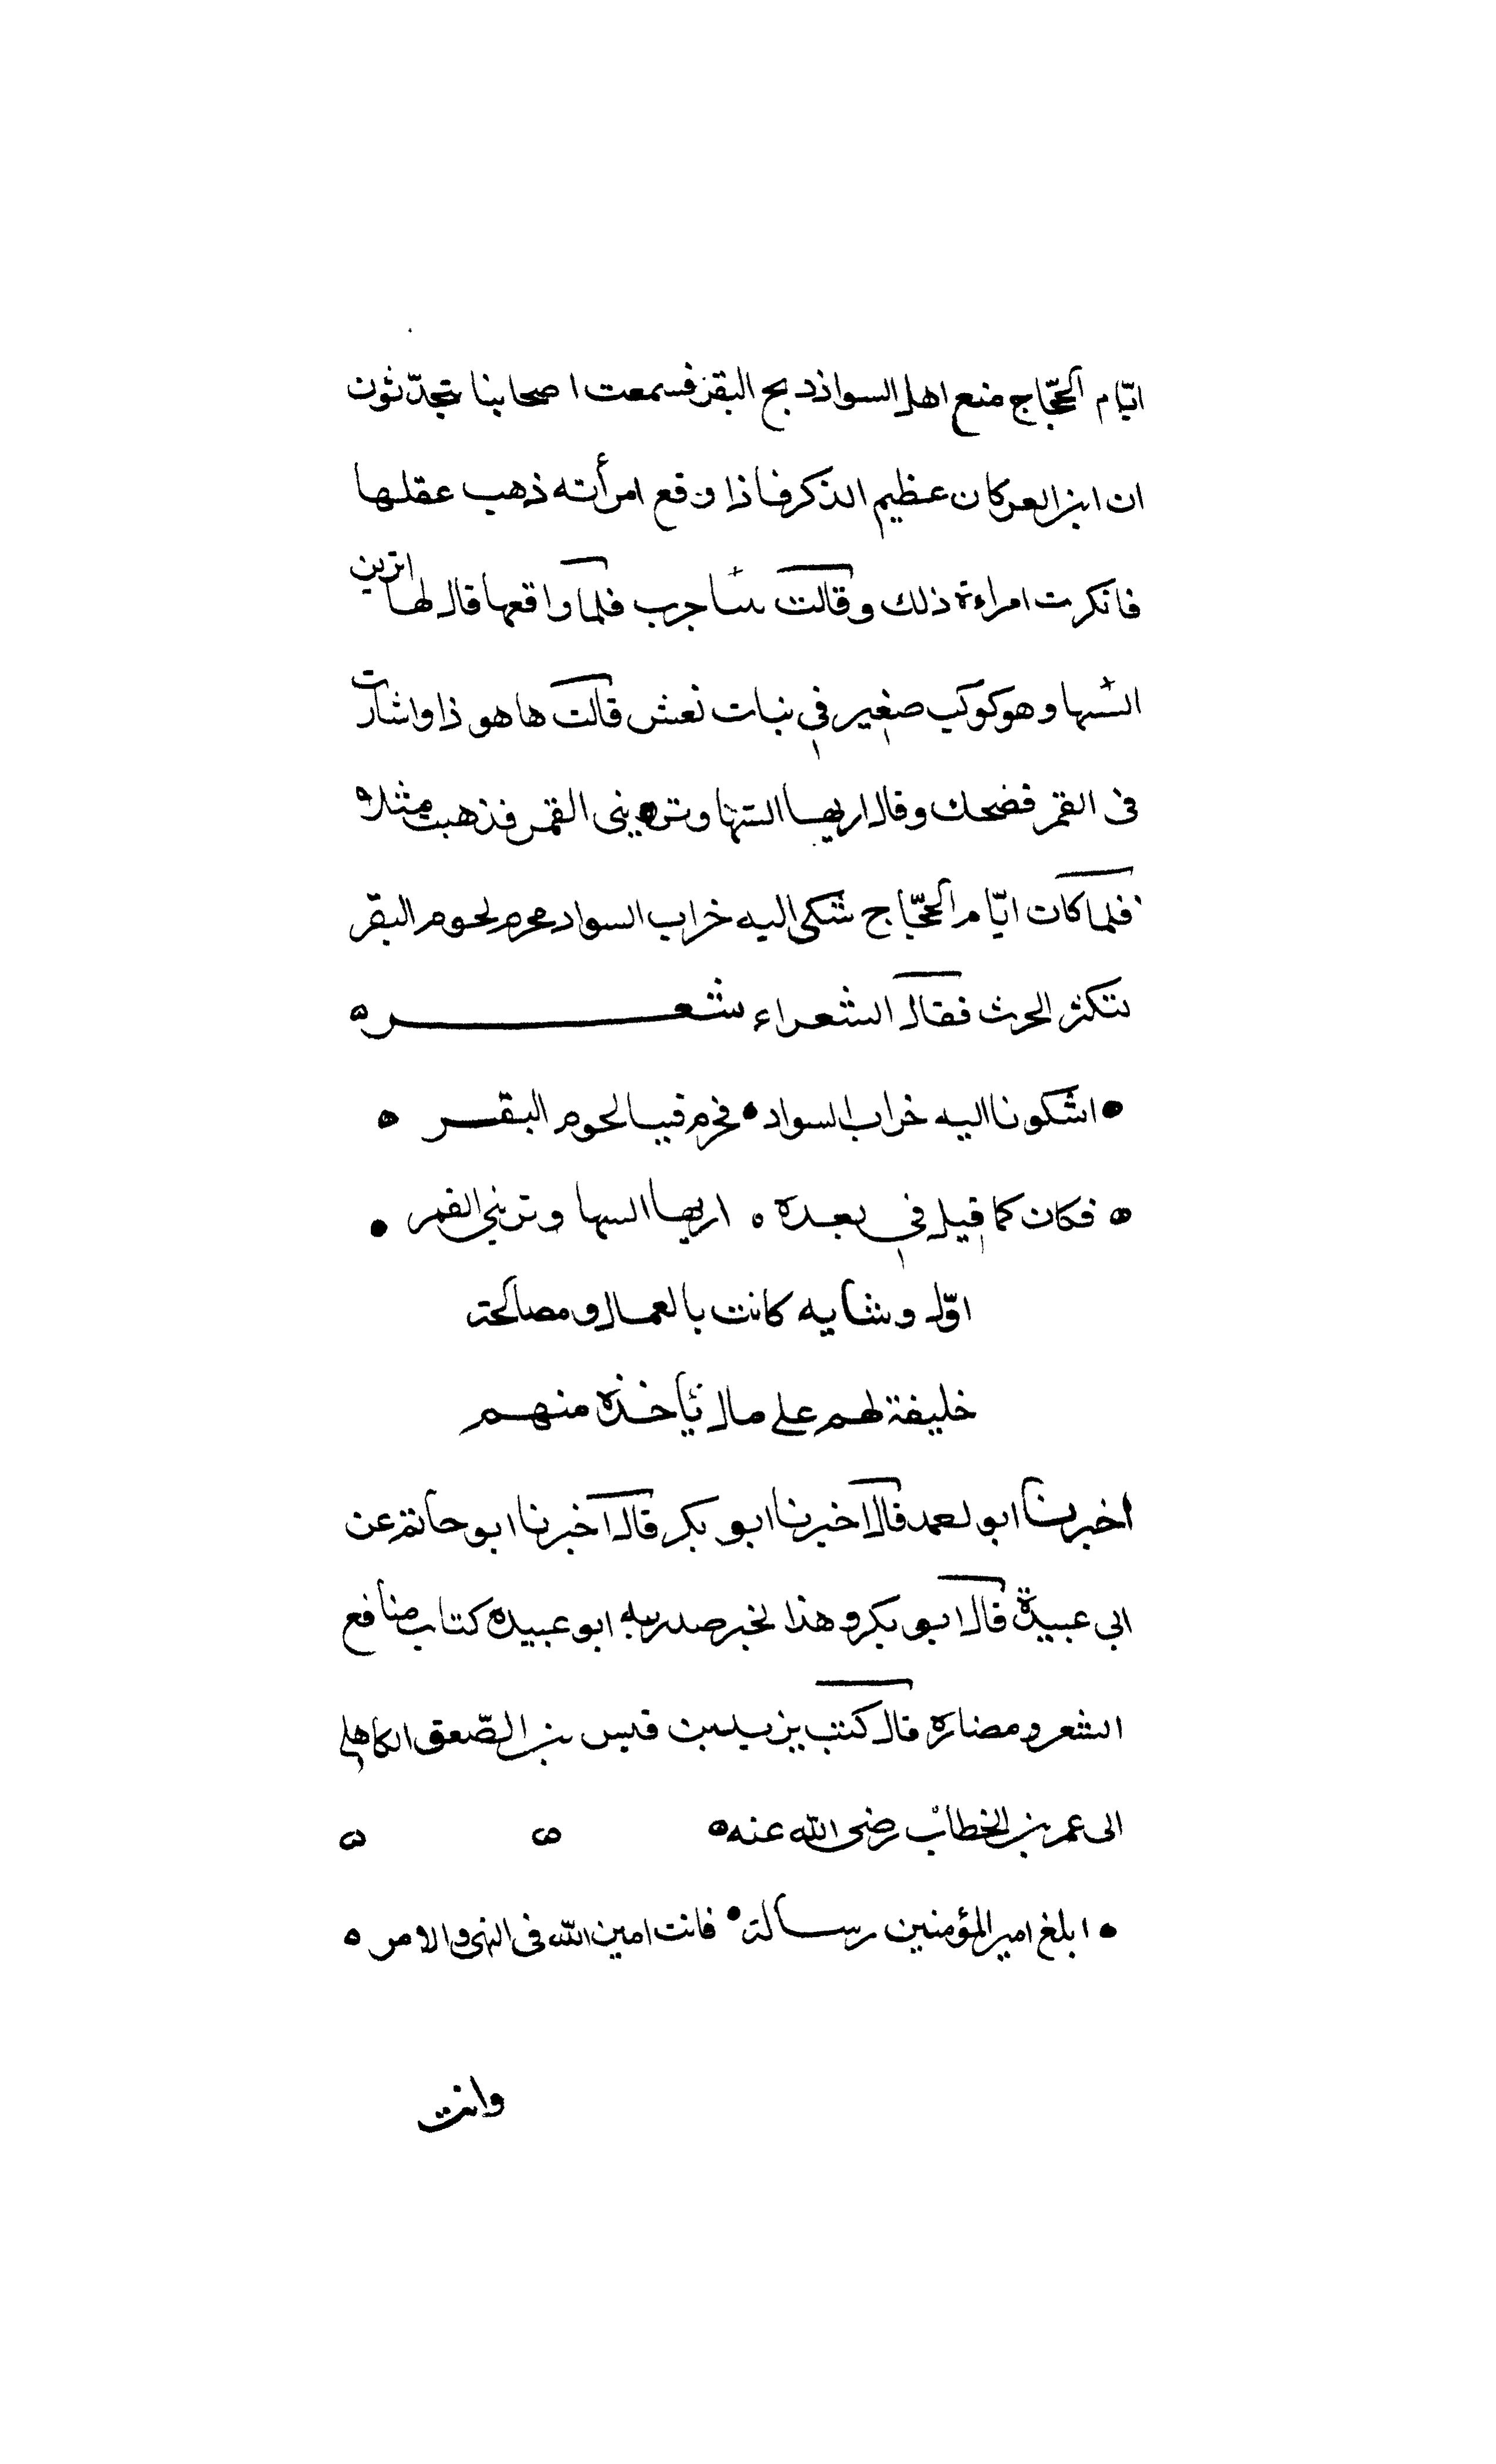 ايّام الحجّاج منع اهل السواد ذبح البقر فسمعت اصحابنا يتحدّثون
ان ابن العز كان عظيم الذكر فاذا وقع امرأته ذهب عقلها
فانكرت امراءة ذلك وقالت ساجرب فلما واقعها قال لها اترين
السها وهو كوكب صغير في بنات نعش قالت ها هو ذا واشارت
فى القمر فضحك وقال اريها السها وترينى القمر فذهبت مثلا ه
فلما كات ايّام الحجّاج شكى اليه خراب السواد محرم لحوم البقر
لتكثر الحرث فقال الشعراء شعر ه
• اشكونا اليه خراب السواد • فحرم فينا لحوم البقر ه
ه فكان كما قيل في بعده ه اريها السها وتريني القمر •
اوّل وشايه كانت بالعمال ومصالحة
خليفة لهم على مال يأخذه منهم
اخبرنا ابو احمد قال اخبرنا ابو بكر قال اخبرنا ابو حاتم عن
ابى عبيدة قال ابو بكر وهذا الخبر صدر به ابو عبيده كتاب منافع
الشعر ومضاره قال كتب يزيد بن قيس بن الصّعق الكاهلي
الى عمر بن الخطاب رضى الله عنه ه ه ه
• ابلغ امير المؤمنين رسالة • فانت امين الله فى النهى والامر ه
وانت